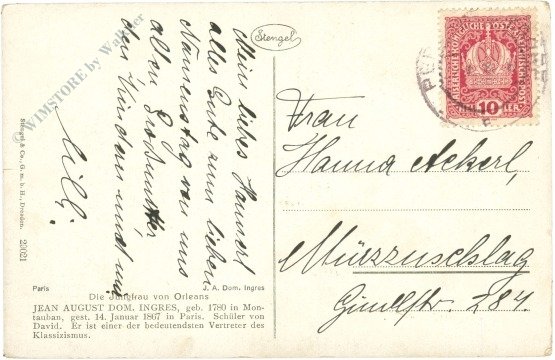 Stengel
Mein liebes Hannerl
alles Gute zum lieben
Namenstag von uns
allen Großmutter
den Kindern und mir
Milli.
© WIMSTORE by Wallner
Stengel & Co., G. m. b. H., Dresden. 29021
ÖSTERREICHISCHE POST
10 HELLER
Frau
Hanna Ackerl,
Mürzzuschlag
284.
Paris
J. A. Dom. Ingres
Die Jungfrau von Orleans
JEAN AUGUST DOM. INGRES, geb. 1780 in Mon-
tauban, gest. 14. Januar 1867 in Paris. Schüler von
David. Er ist einer der bedeutendsten Vertreter des
Klassizismus.